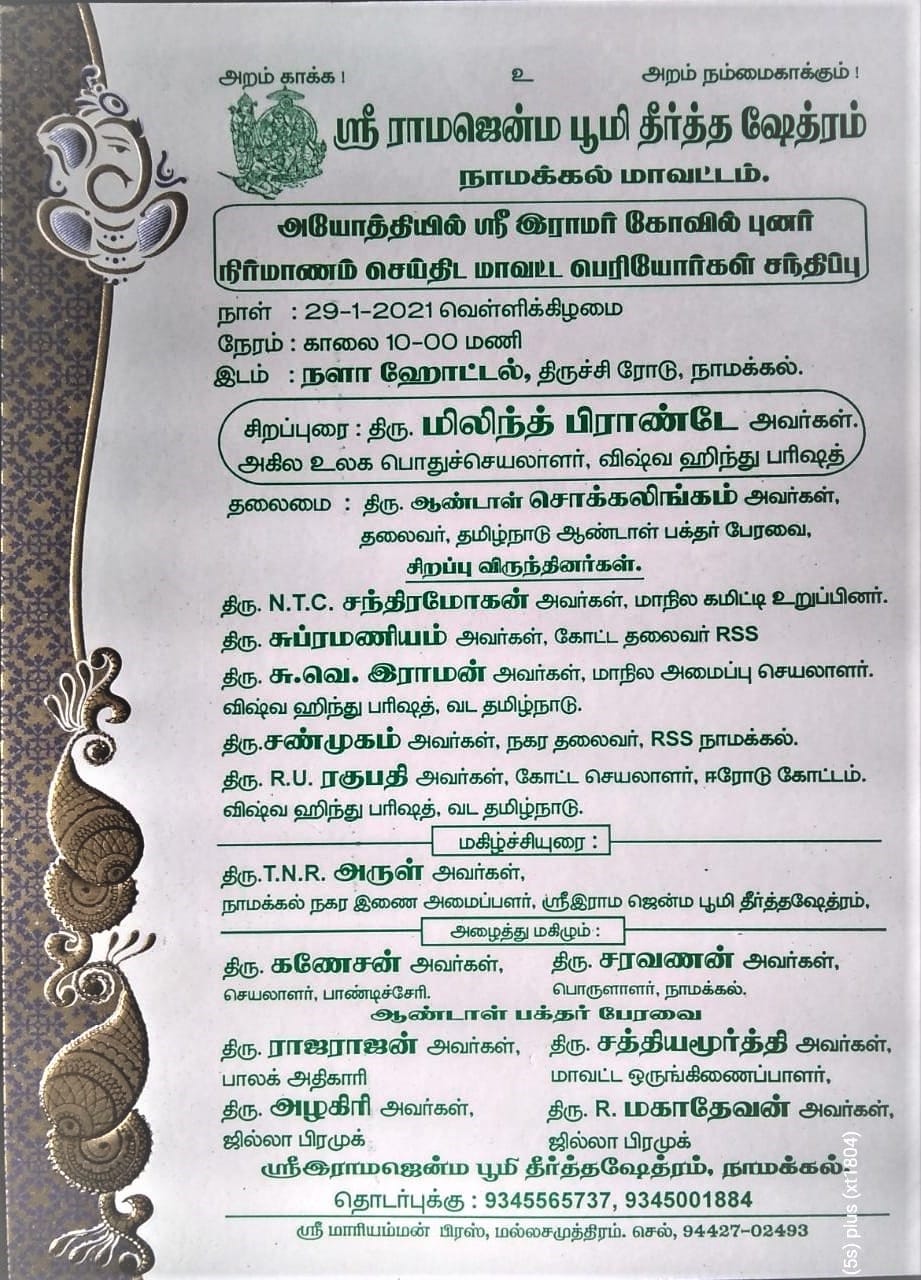 அறம் காக்க ! உ அறம் நம்மைகாக்கும் !
ஸ்ரீ ராமஜென்ம பூமி தீர்த்த ஷேத்ரம்
நாமக்கல் மாவட்டம்.
அயோத்தியில் ஸ்ரீ இராமர் கோவில் புனர்
நிர்மாணம் செய்திட மாவட்ட பெரியோர்கள் சந்திப்பு
நாள் : 29-1-2021 வெள்ளிக்கிழமை
நேரம் : காலை 10-00 மணி
இடம் : நளா ஹோட்டல், திருச்சி ரோடு, நாமக்கல்.
சிறப்புரை : திரு. மிலிந்த் பிராண்டே அவர்கள்.
அகில உலக பொதுச்செயலாளர், விஷ்வ ஹிந்து பரிஷத்
தலைமை : திரு. ஆண்டாள் சொக்கலிங்கம் அவர்கள்,
தலைவர், தமிழ்நாடு ஆண்டாள் பக்தர் பேரவை,
சிறப்பு விருந்தினர்கள்.
திரு. N.T.C. சந்திரமோகன் அவர்கள், மாநில கமிட்டி உறுப்பினர்.
திரு. சுப்ரமணியம் அவர்கள், கோட்ட தலைவர் RSS
திரு. சு.வெ. இராமன் அவர்கள், மாநில அமைப்பு செயலாளர்.
விஷ்வ ஹிந்து பரிஷத், வட தமிழ்நாடு.
திரு.சண்முகம் அவர்கள், நகர தலைவர், RSS நாமக்கல்.
திரு. R.U. ரகுபதி அவர்கள், கோட்ட செயலாளர், ஈரோடு கோட்டம்.
விஷ்வ ஹிந்து பரிஷத், வட தமிழ்நாடு.
மகிழ்ச்சியுரை :
திரு.T.N.R. அருள் அவர்கள்,
நாமக்கல் நகர இணை அமைப்பளர், ஸ்ரீஇராம ஜென்ம பூமி தீர்த்தஷேத்ரம்,
அழைத்து மகிழும் :
திரு. கணேசன் அவர்கள், திரு. சரவணன் அவர்கள்,
செயலாளர், பாண்டிச்சேரி. பொருளாளர், நாமக்கல்.
ஆண்டாள் பக்தர் பேரவை
திரு. ராஜராஜன் அவர்கள், திரு. சத்தியமூர்த்தி அவர்கள்,
பாலக் அதிகாரி மாவட்ட ஒருங்கிணைப்பாளர்,
திரு. அழகிரி அவர்கள், திரு. R. மகாதேவன் அவர்கள்,
ஜில்லா பிரமுக் ஜில்லா பிரமுக்
ஸ்ரீஇராமஜென்ம பூமி தீர்த்தஷேத்ரம், நாமக்கல்.
தொடர்புக்கு : 9345565737, 9345001884
ஸ்ரீ மாரியம்மன் பிரஸ், மல்லசமுத்திரம். செல், 94427-02493
(5s) plus (xt1804)